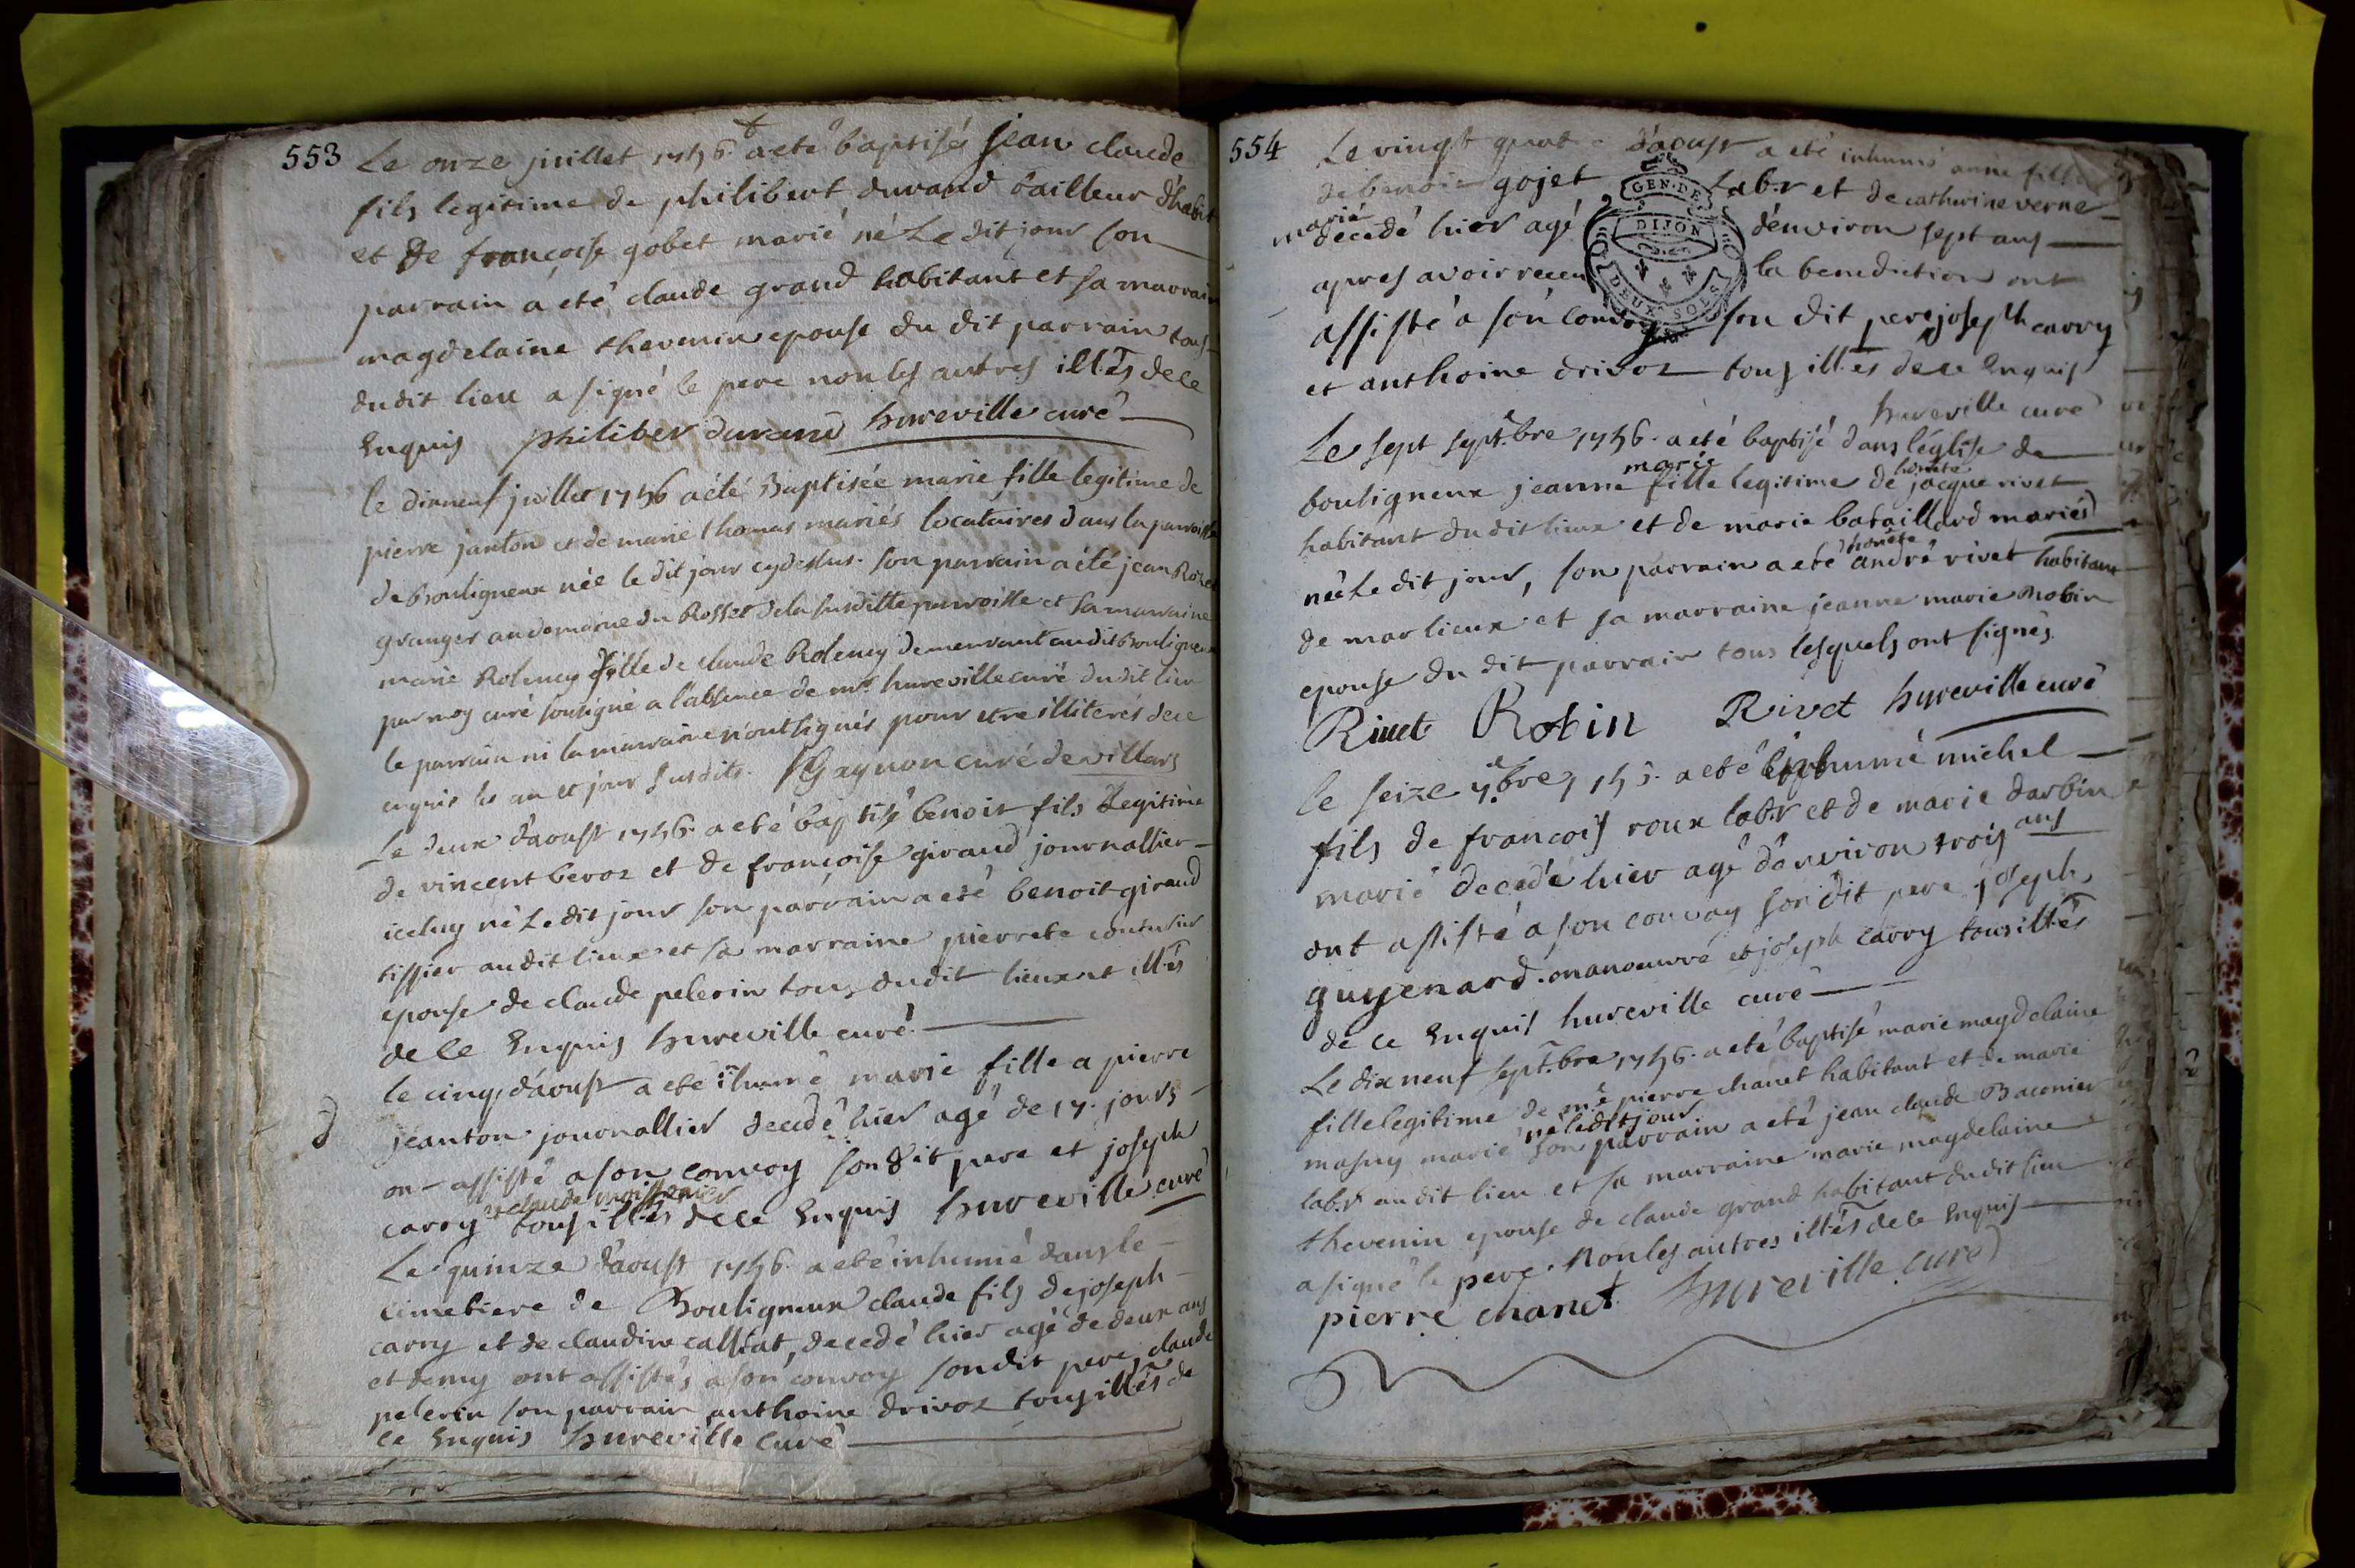 553
Le onze juillet 1756 a eté baptisés jean claude
fils legitime de philibert durand tailleur d'habit
et de francoise gobet marié né Le dit jour son
parrain a eté claude grand habitant et sa marraine
magdelaine thevenin epouse du dit parrain tous
dudit lieu a signé le pere non les autres illes de ce
Enquis philiber durand hureville curé
le dixneuf juillet 1756 a été Baptisée marie fille legitime de
pierre janton et de marie thomas mariés locataires dans la parroisse
de Bouligneux née le dit jour cy dessus. son parrain a été jean
granger au domaine du Rosset de la susditte parroisse et sa marraine
marie Roleney fille de claude Roleney demeurant au dit Bouligneux
par moy curé soussigné a l'absence de mre hureville curé du dit lieu
le parrain ni la marraine n'ont signés pour etre illiterés de ce
enquis les an et jour susdits. Gagnon curé de villars
Le deux d'aoust 1756 a eté baptisé benoit fils Legitime
de vincent beroz et de françoise giraud journallier
iceluy né Le dit jour son parrain a eté benoit giraud
tissier au dit lieux et sa marraine pierrete couturier
epouse de claude pelerin tous du dit lieux et illés
de ce Enquis hureville curé
le cinq d'aoust a eté ihumé marie fille a pierre
jeanton journallier decedé hier agé de 17 jours
on assisté a son convoy son dit pere et joseph
et claude moissonier
carry tous illés de ce Enquis hureville curé
Le quinze d'aoust 1756 a eté inhumé dans le
cimetiere de Bouligneux claude fils de joseph
carry et de claudine callat, decedé hier agé de deux ans
et demy ont assistés a son convoy son dit pere claude
pelerin son parrain anthoine drivoz tous illés de
ce Enquis hureville curé
554
Le vingt quat d'aoust a eté inhumé anne fille
de benoit gojet Labr et de catherine verne
marié
decedé hier agé d'environ sept ans
apres avoir receu la benediction ont
assisté a son convoy son dit pere joseph carry
et anthoine drivoz tous illés de ce Enquis
hureville curé
GEN. DE
DIJON
DEUX SOLS
Le sept septbre 1756 a eté baptisé dans l'église de
marie honete
bouligneux jeanne fille legitime de jacque rivet
habitant du dit lieux et de marie bataillard mariés
honete
née Le dit jour, son parrain a eté andré rivet habitant
de marlieux et sa marraine jeanne marie Robin
epouse du dit parrain tous lesquels ont signés.
Rivet Robin Rivet hureville curé
le seize 7bre 1756 a eté inhumé michel
fils de francois roux labr et de marie darbin
marié decedé hier agé d'environ trois ans
ont assisté a son convoy son dit pere joseph
guyenard manoeuvré et joseph carry tous illés
de ce Enquis hureville curé
Le dix neuf septbre 1756 a eté baptisé marie magdelaine
fille legitime de me pierre chanet habitant et de marie
né ledit jour
masuy marié son parrain a eté jean claude Baconier
labr au dit lieu et sa marraine marie magdelaine
thevenin epouse de claude grand habitant du dit lieu
a signé le pere. Non les autres illés de ce Enquis
pierre chanet hureville curé